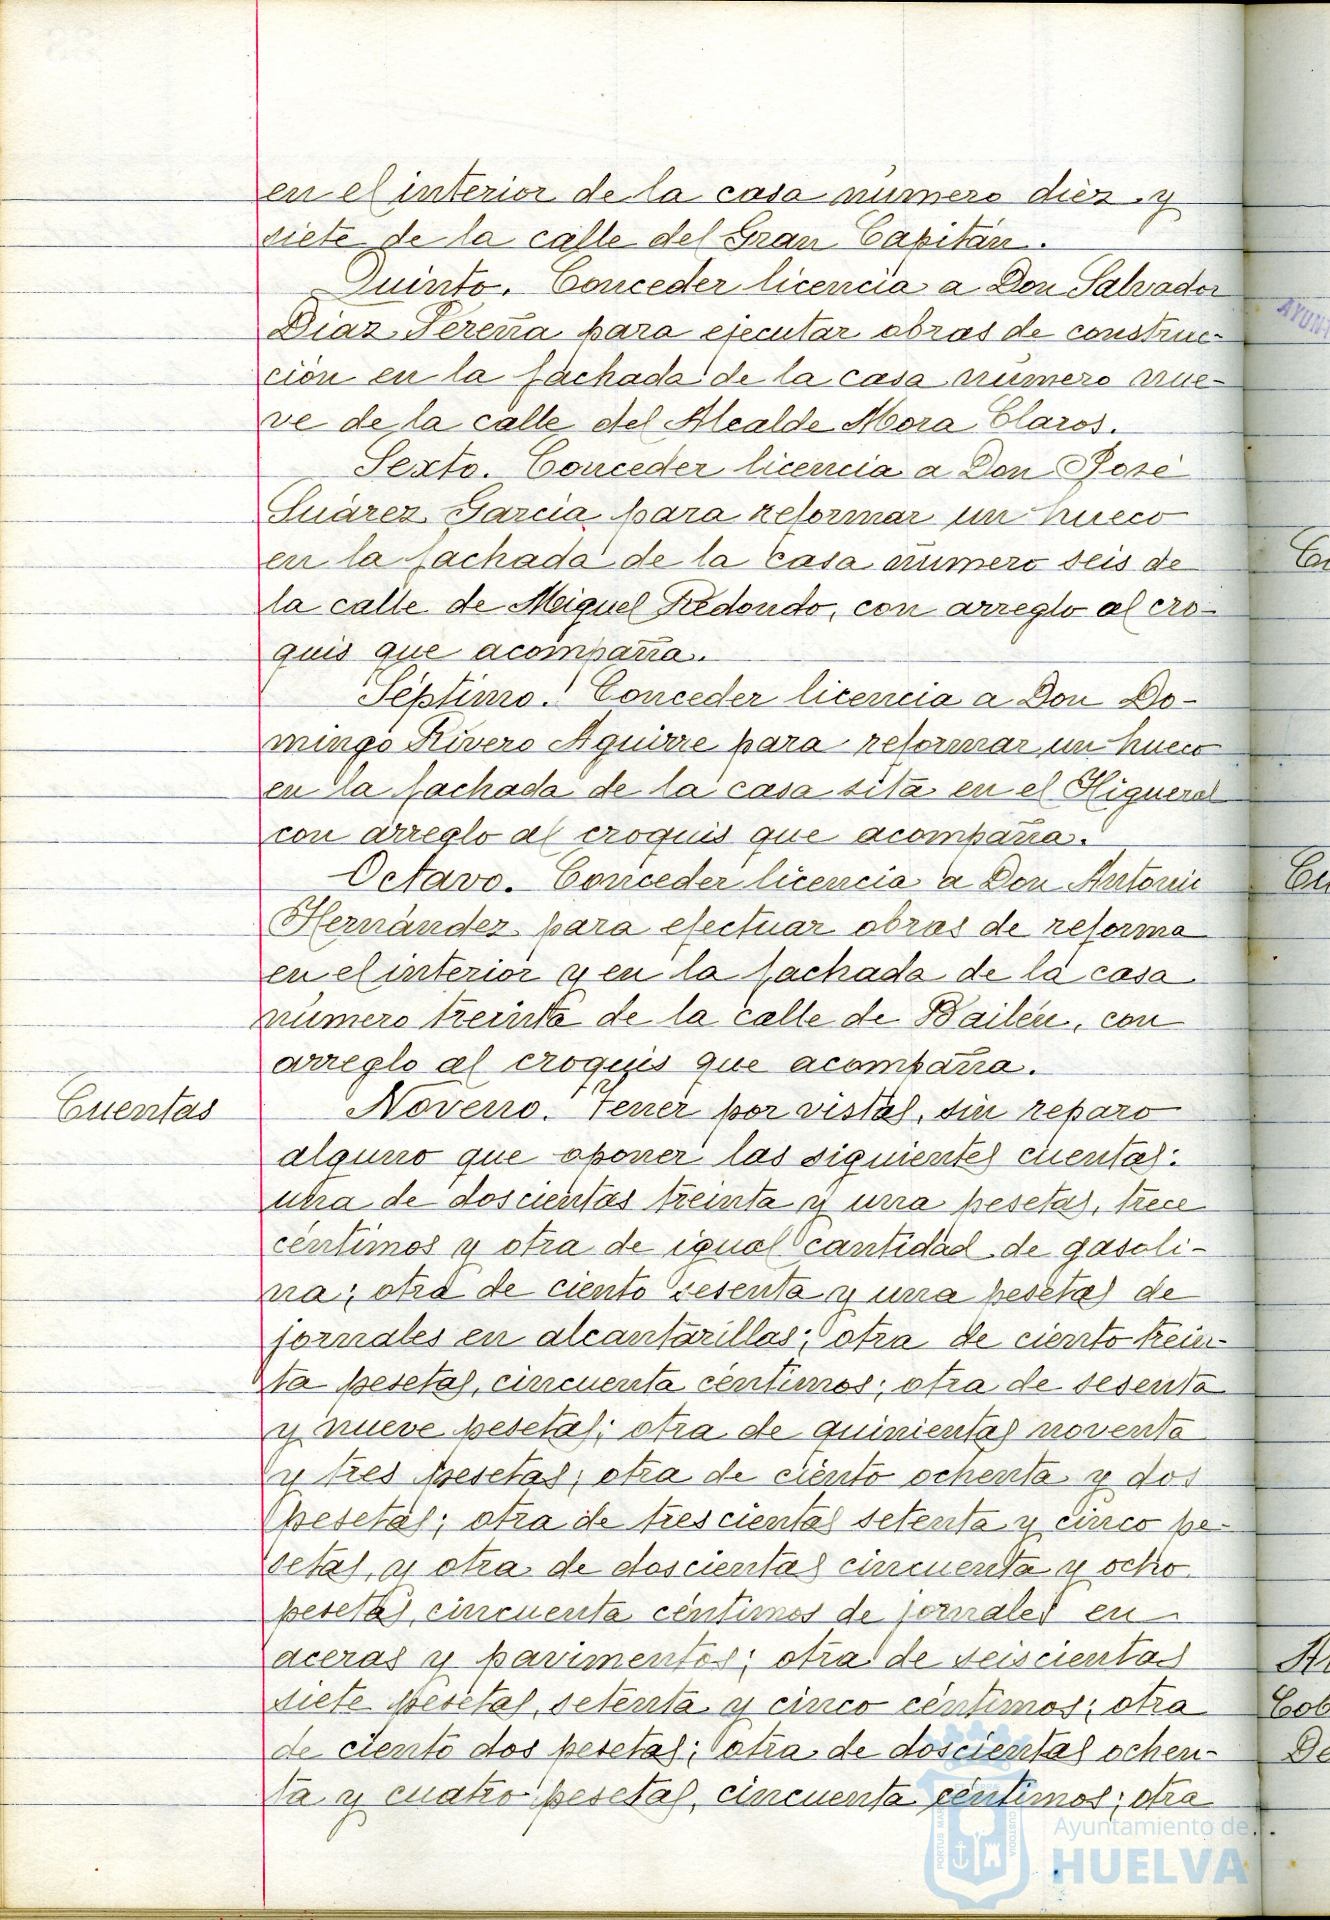 en el interior de la casa número diez y
siete de la calle del Gran Capitán.
Quinto. Conceder licencia a Don Salvador
Díaz Pereña para ejecutar obras de construc-
ción en la fachada de la casa número nue-
ve de la calle del Alcalde Mora Claros.
Sexto. Conceder licencia a Don José
Suárez García para reformar un hueco
en la fachada de la casa número seis de
la calle de Miguel Redondo, con arreglo al cro-
quis que acompaña.
Séptimo. Conceder licencia a Don Do-
mingo Rivero Aguirre para reformar un hueco
en la fachada de la casa sita en el Higueral
con arreglo al croquis que acompaña.
Octavo. Conceder licencia a Don Antonio
Hernández para efectuar obras de reforma
en el interior y en la fachada de la casa
número treinta de la calle de Bailén, con
arreglo al croquis que acompaña.
Cuentas
Noveno. Tener por vistas, sin reparo
alguno que oponer las siguientes cuentas:
una de doscientas treinta y una pesetas, trece
céntimos y otra de igual cantidad de gasoli-
na; otra de ciento sesenta y una pesetas de
jornales en alcantarillas; otra de ciento trein-
ta pesetas, cincuenta céntimos; otra de sesenta
y nueve pesetas; otra de quinientas noventa
y tres pesetas; otra de ciento ochenta y dos
pesetas; otra de trescientas setenta y cinco pe-
setas, y otra de doscientas cincuenta y ocho
pesetas, cincuenta céntimos de jornales en
aceras y pavimentos; otra de seiscientas
siete pesetas, setenta y cinco céntimos; otra
de ciento dos pesetas; otra de doscientas ochen-
ta y cuatro pesetas, cincuenta céntimos; otra
Ayuntamiento de
HUELVA
PORTUS MARIS
CUSTODIA
AYUNT
Cu
Cu
Ar
Cob
De